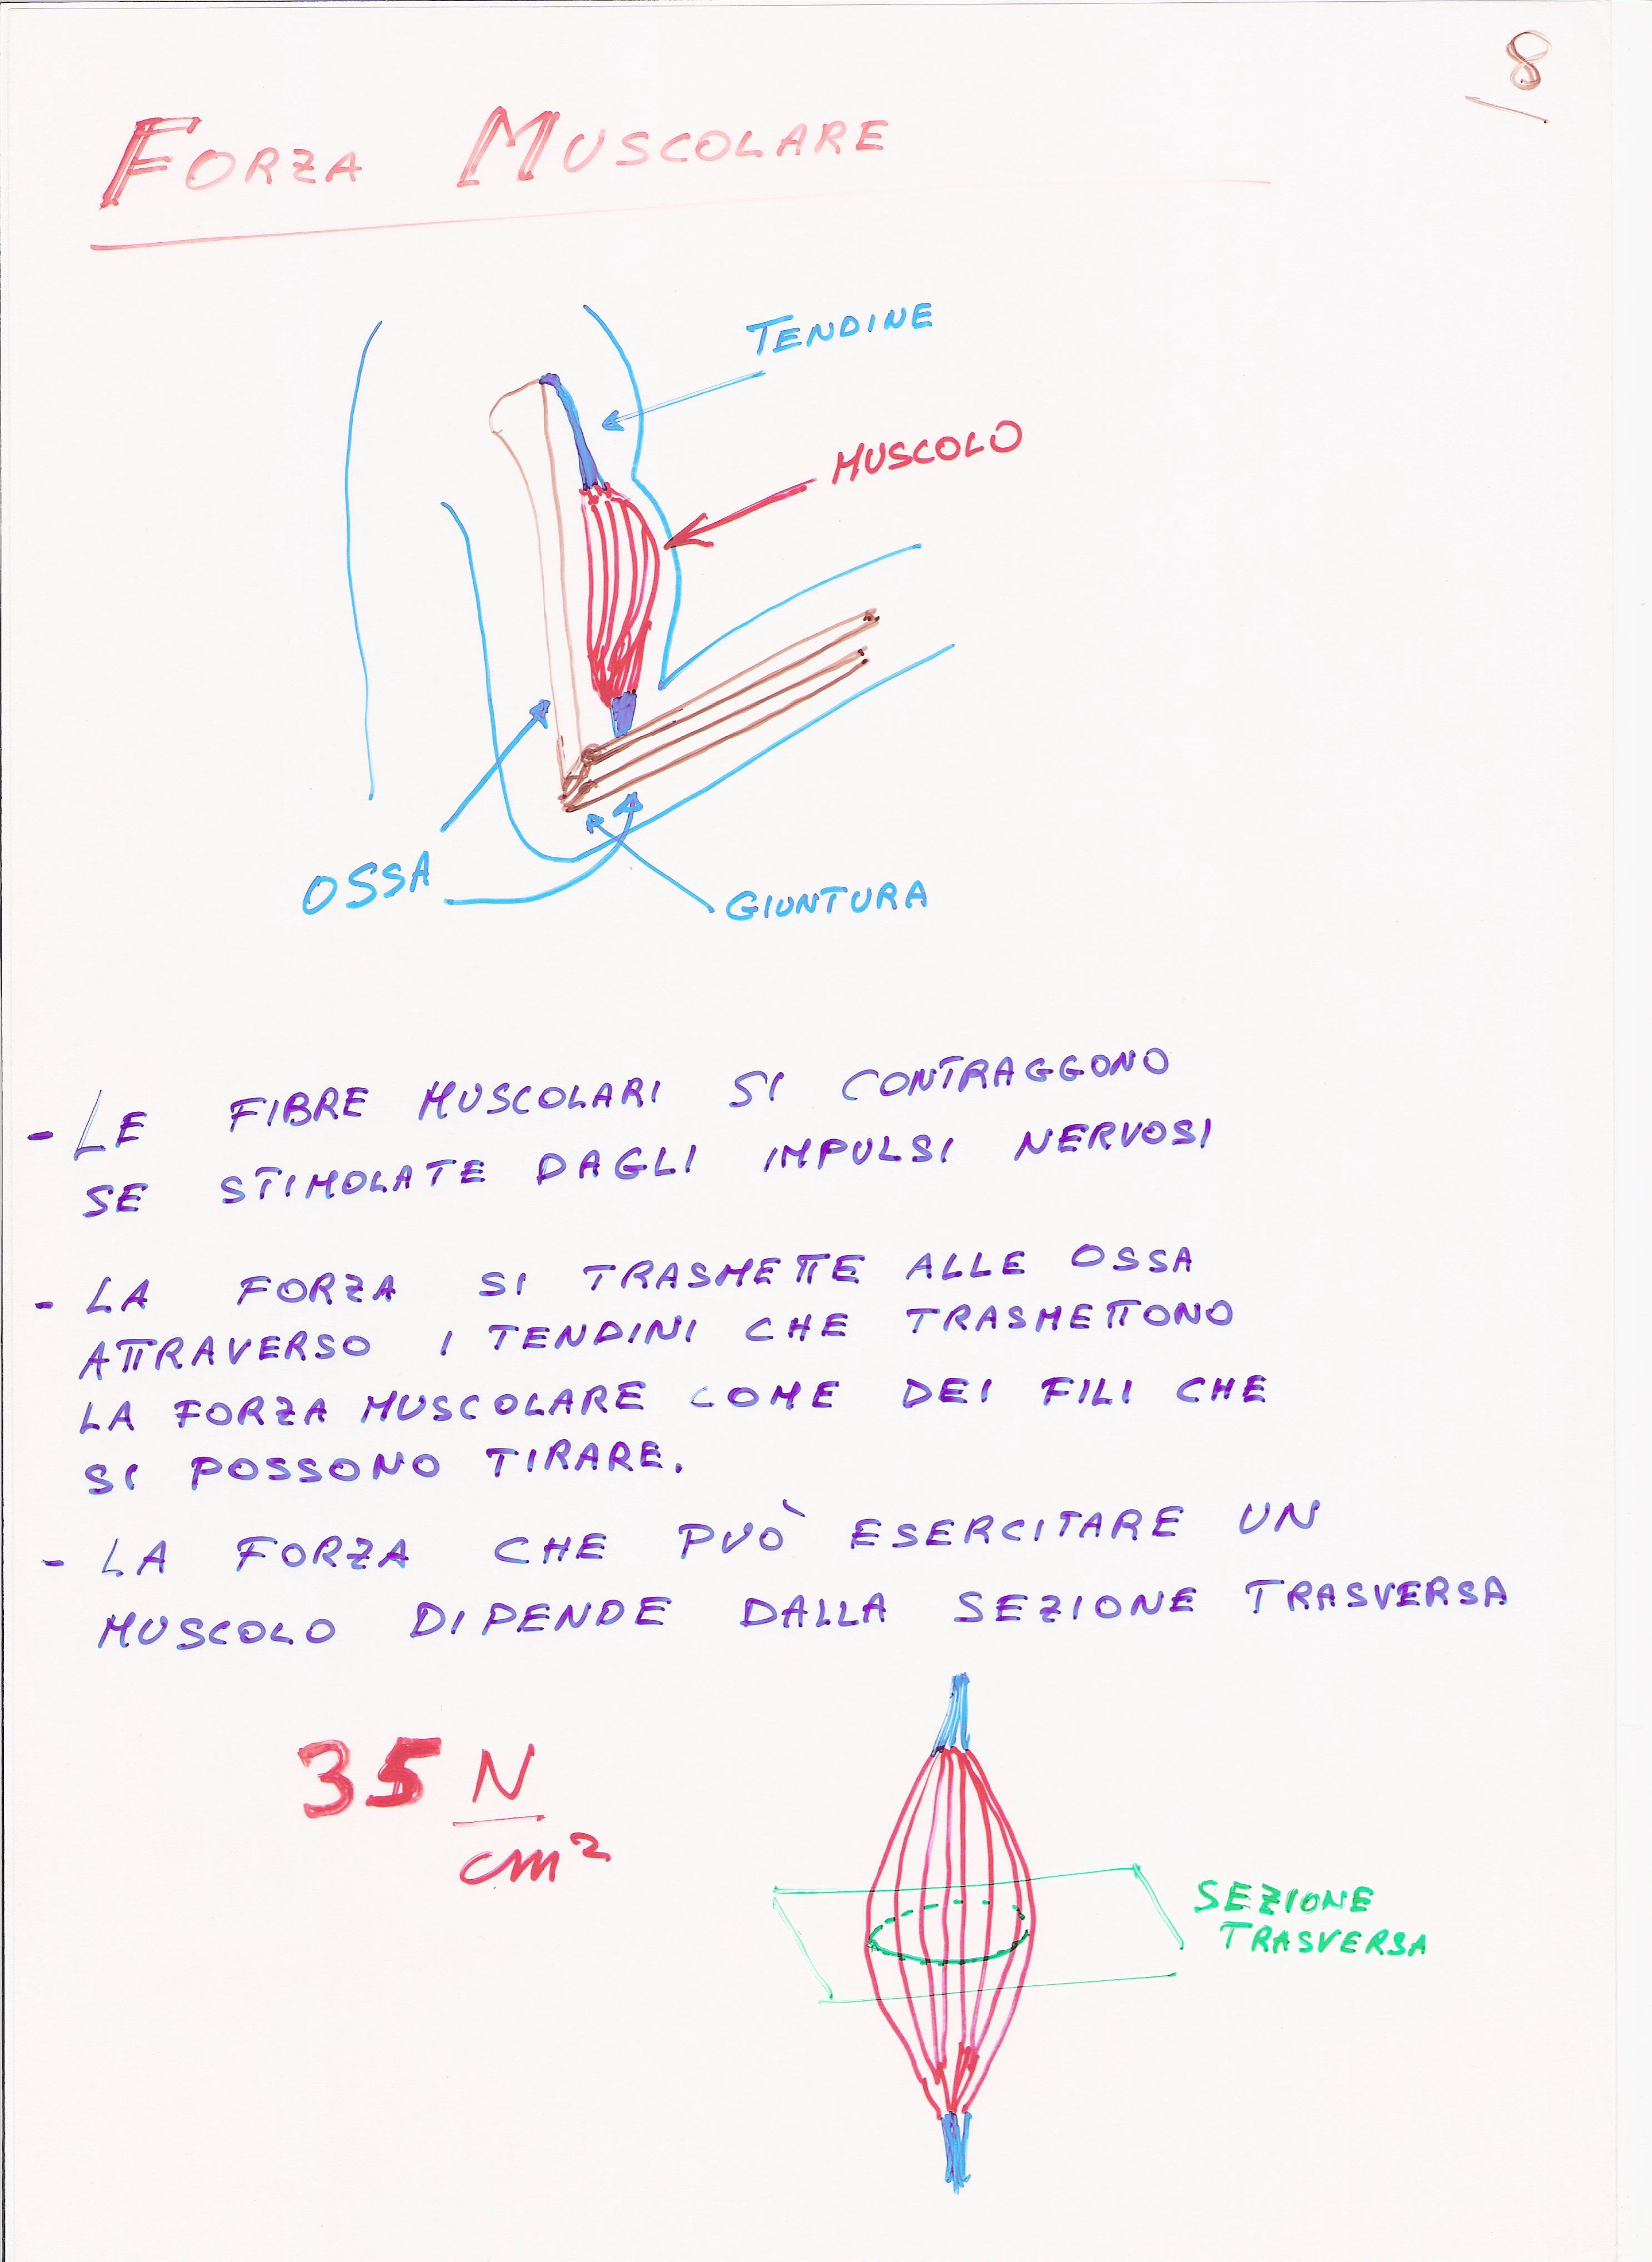 8
FORZA MUSCOLARE
TENDINE
MUSCOLO
OSSA
GIUNTURA
- LE FIBRE MUSCOLARI SI CONTRAGGONO
SE STIMOLATE DAGLI IMPULSI NERVOSI
- LA FORZA SI TRASMETTE ALLE OSSA
ATTRAVERSO I TENDINI CHE TRASMETTONO
LA FORZA MUSCOLARE COME DEI FILI CHE
SI POSSONO TIRARE.
- LA FORZA CHE PUÒ ESERCITARE UN
MUSCOLO DIPENDE DALLA SEZIONE TRASVERSA
35 N
cm²
SEZIONE
TRASVERSA